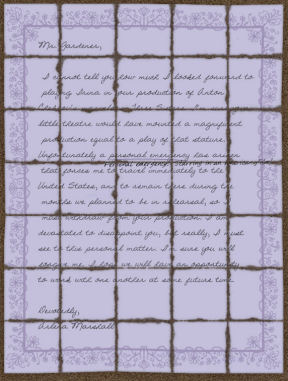 Mr. Gardener,
I cannot tell you how much I looked forward to
playing Irina in your production of Anton
little theatre would have mounted a magnificent
production equal to a play of that stature.
Unfortunately a personal emergency has arisen
that forces me to travel immediately to the
United States, and to remain there during the
months we planned to be in rehearsal, so I
must withdraw from your production. I am
devastated to disappoint you, but really, I must
see to this personal matter. I'm sure you will
forgive me. I hope we will have an opportunity
to work with one another at some future time.
Devotedly,
Arlena Marshall